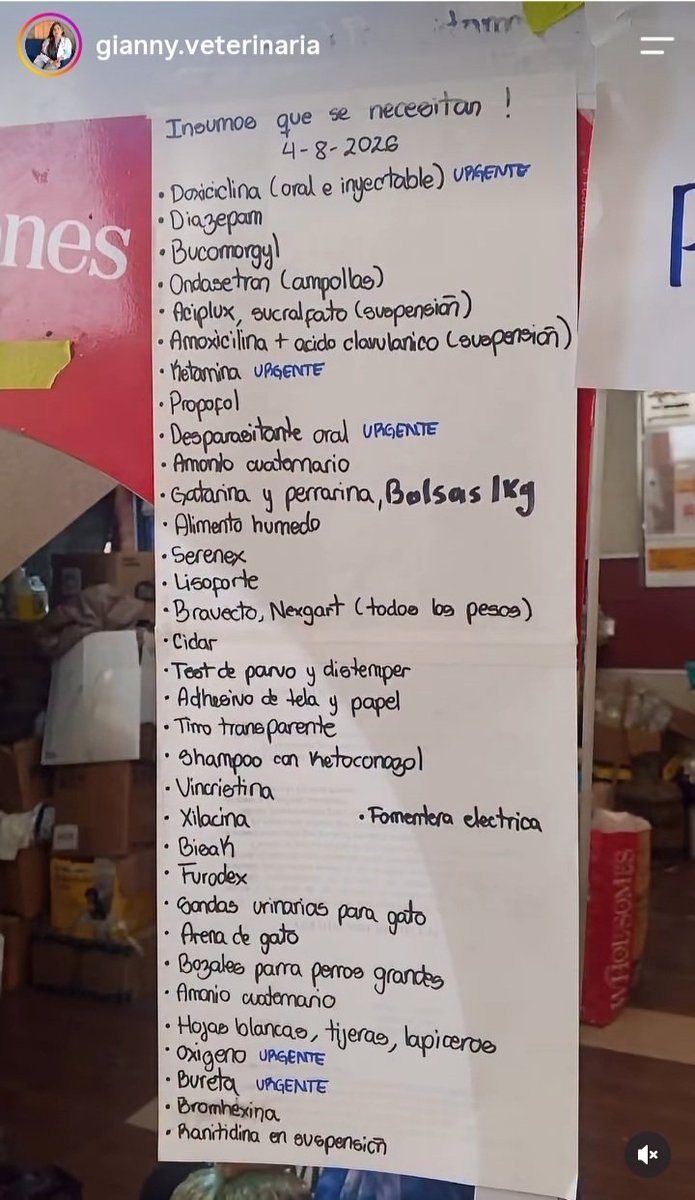 gianny.veterinaria
Insumos que se necesitan !
4-8-2026
• Doxiciclina (oral e inyectable) URGENTE
• Diazepam
• Bucomorgyl
• Ondasetron (ampollas)
• Aciplux, sucralfato (suspensión)
• Amoxicilina + acido clavulanico (suspensión)
• Ketamina URGENTE
• Propofol
• Desparasitante oral URGENTE
• Amonio cuaternario
• Gatarina y perrarina, Bolsas 1kg
• Alimento humedo
• Serenex
• Lisoforte
• Bravecto, Nexgart (todos los pesos)
• Cidar
• Test de parvo y distemper
• Adhesivo de tela y papel
• Tirro transparente
• Shampoo con Ketoconazol
• Vincristina
• Xilacina • Fomentera electrica
• Bieak
• Furodex
• Sondas urinarias para gato
• Arena de gato
• Bozales parra perros grandes
• Amonio cuaternario
• Hojas blancas, tijeras, lapiceros
• Oxigeno URGENTE
• Bureta URGENTE
• Bromhexina
• Ranitidina en suspensión
nes
WHOLESOMES